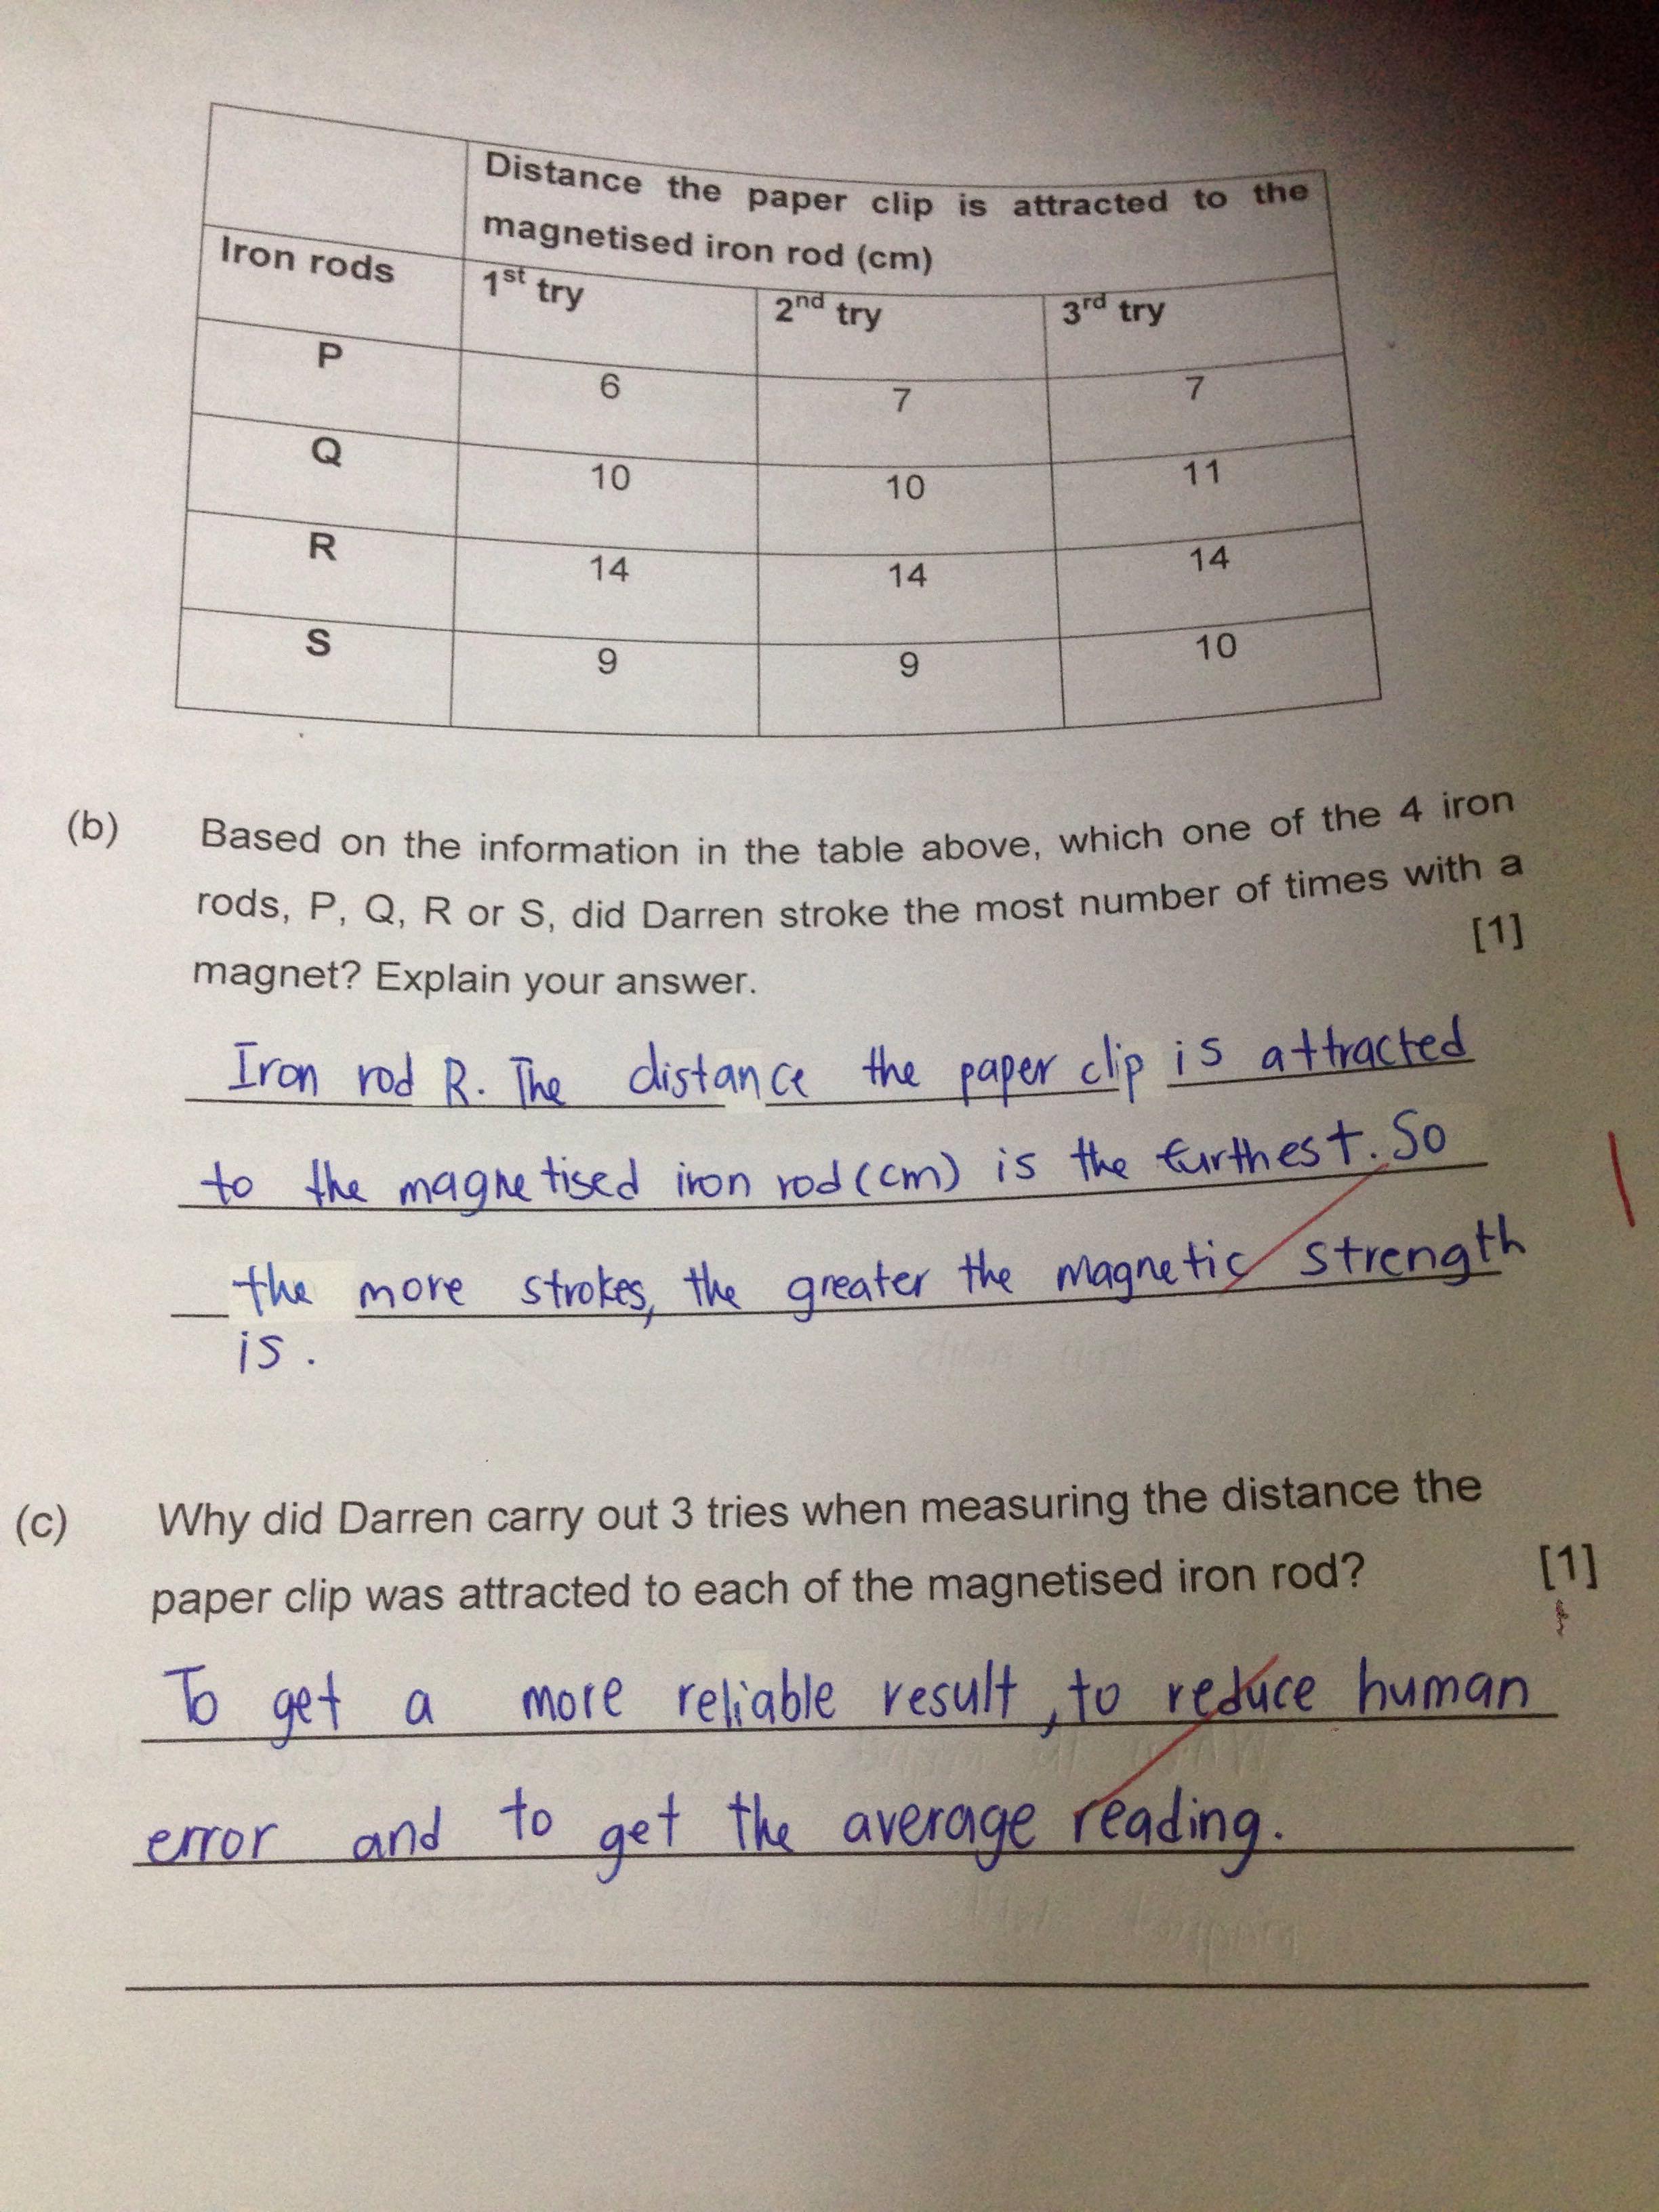 Distance the paper clip is attracted to the
magnetised iron rod (cm)
Iron rods 1st try 2nd try 3rd try
P 6 7 7
Q 10 10 11
R 14 14 14
S 9 9 10
(b) Based on the information in the table above, which one of the 4 iron
rods, P, Q, R or S, did Darren stroke the most number of times with a
magnet? Explain your answer. [1]
Iron rod R. The distance the paper clip is attracted
to the magnetised iron rod (cm) is the furthest. So
the more strokes, the greater the magnetic strength
is.
(c) Why did Darren carry out 3 tries when measuring the distance the
paper clip was attracted to each of the magnetised iron rod? [1]
To get a more reliable result, to reduce human
error and to get the average reading.